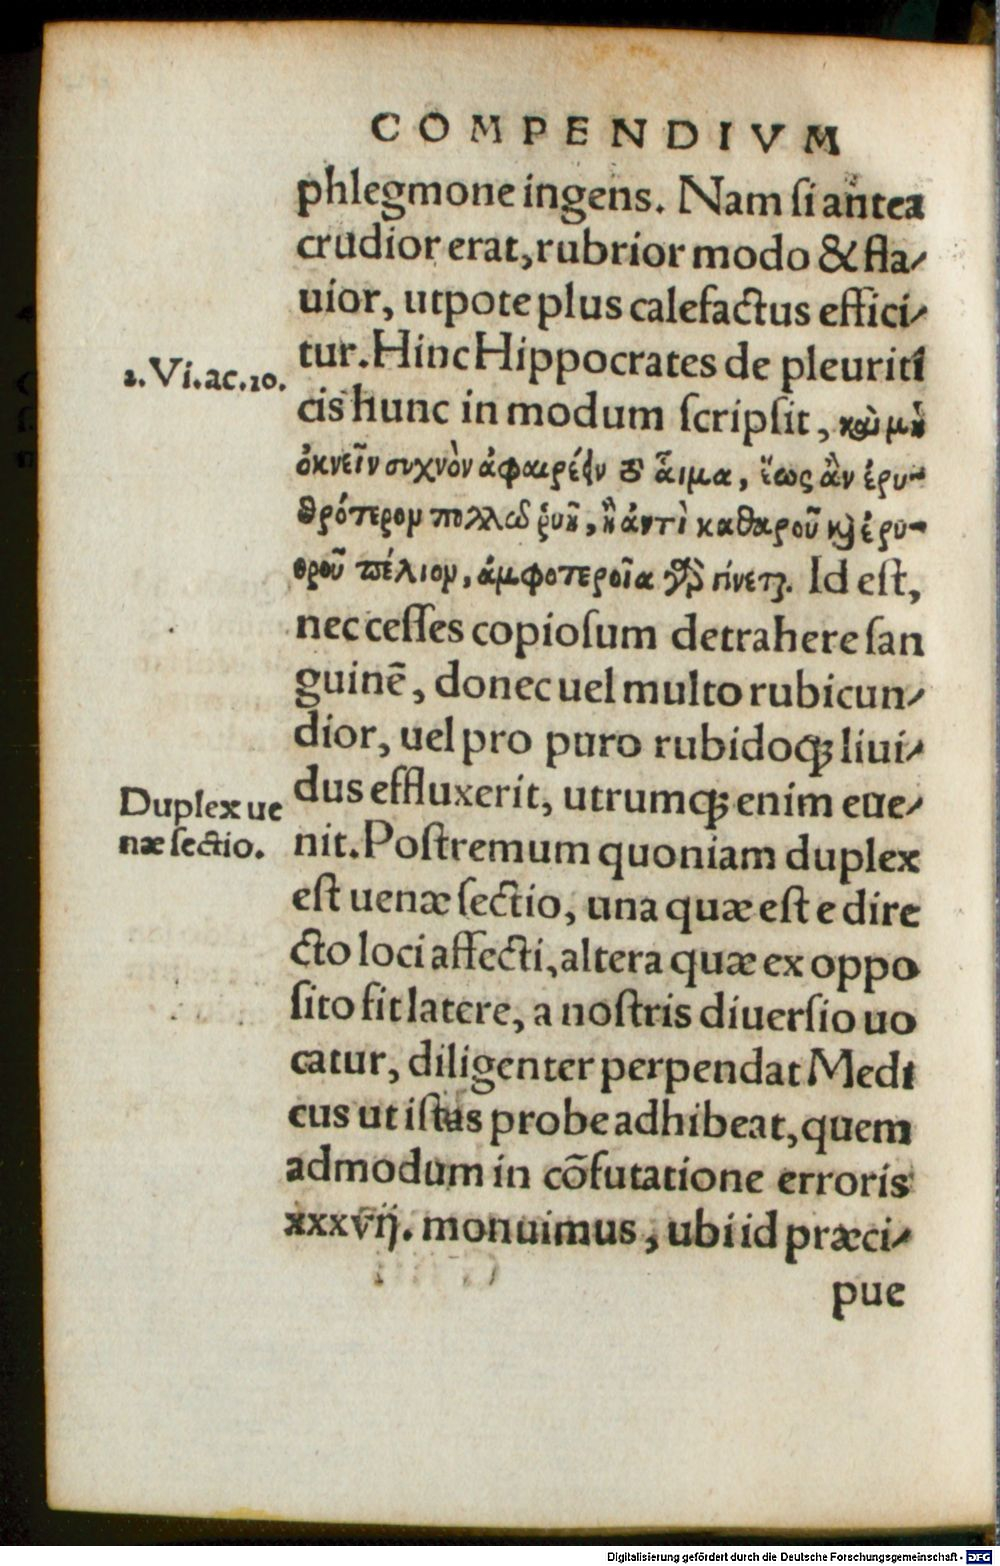 COMPENDIVM
phlegmone ingens. Nam si antea
crudior erat, rubrior modo & fla⸗
uior, utpote plus calefactus effici⸗
tur. Hinc Hippocrates de pleuriti
2. Vi. ac. 10.
cis hunc in modum scripsit, καὶ μὴ
ὀκνεῖν συχνὸν ἀφαιρέειν τὸ αἷμα, ἕως ἂν ἐρυ-
θρότερον πολλῷ ῥυῇ, ἢ ἀντὶ καθαροῦ καὶ ἐρυ-
θροῦ πέλιον, ἀμφοτεροῖα γὰρ γίνεται. Id est,
nec cesses copiosum detrahere san
guinē, donec uel multo rubicun⸗
dior, uel pro puro rubidoq́ꝫ liui⸗
dus effluxerit, utrumqꝫ enim eue⸗
Duplex ue
næ sectio.
nit. Postremum quoniam duplex
est uenæ sectio, una quæ est e dire
cto loci affecti, altera quæ ex oppo
sito fit latere, a nostris diuersio uo
catur, diligenter perpendat Medi
cus ut istas probe adhibeat, quem
admodum in cōfutatione erroris
xxxvij. monuimus, ubi id præci⸗
pue
Digitalisierung gefördert durch die Deutsche Forschungsgemeinschaft - DFG